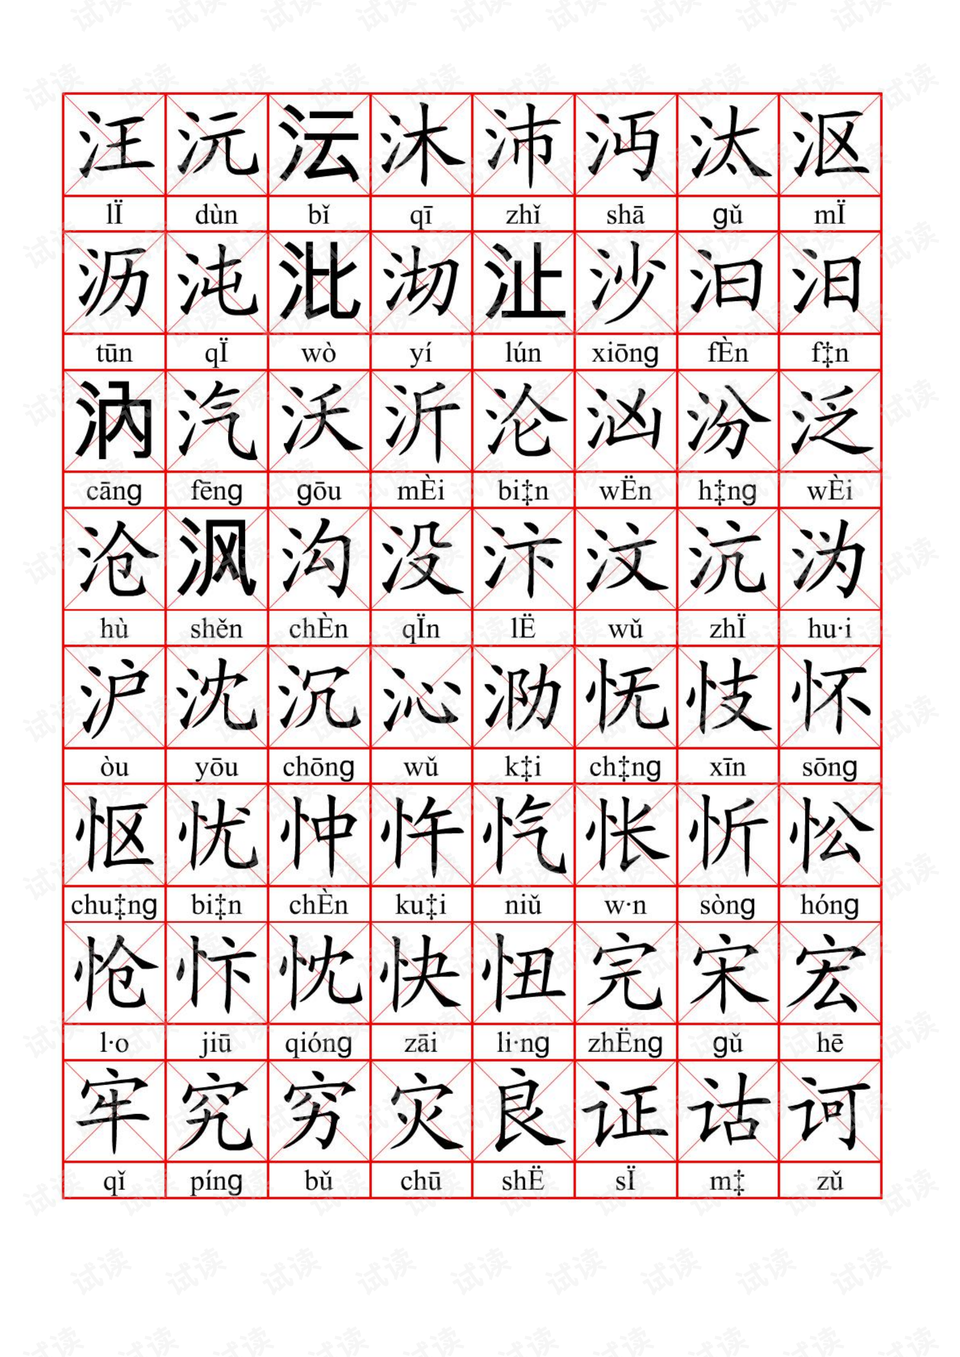 汪 沅 沄 沐 沛 沔 汰 沤
lÏ dùn bǐ qī zhǐ shā gǔ mÏ
沥 沌 沘 沏 沚 沙 汩 汨
tūn qÏ wò yí lún xiōng fÈn f‡n
汭 汽 沃 沂 沦 汹 汾 泛
cāng fēng gōu mÈi bi‡n wËn h‡ng wÈi
沧 沨 沟 没 汴 汶 沆 沩
hù shěn chÈn qÏn lË wǔ zhÏ hu·i
沪 沈 沉 沁 泐 怃 忮 怀
òu yōu chōng wǔ k‡i ch‡ng xīn sōng
怄 忧 忡 忤 忾 怅 忻 忪
chu‡ng bi‡n chÈn ku‡i niǔ w·n sòng hóng
怆 忭 忱 快 忸 完 宋 宏
l·o jiū qióng zāi li·ng zhËng gǔ hē
牢 究 穷 灾 良 证 诂 诃
qǐ píng bǔ chū shË sÏ m‡ zǔ